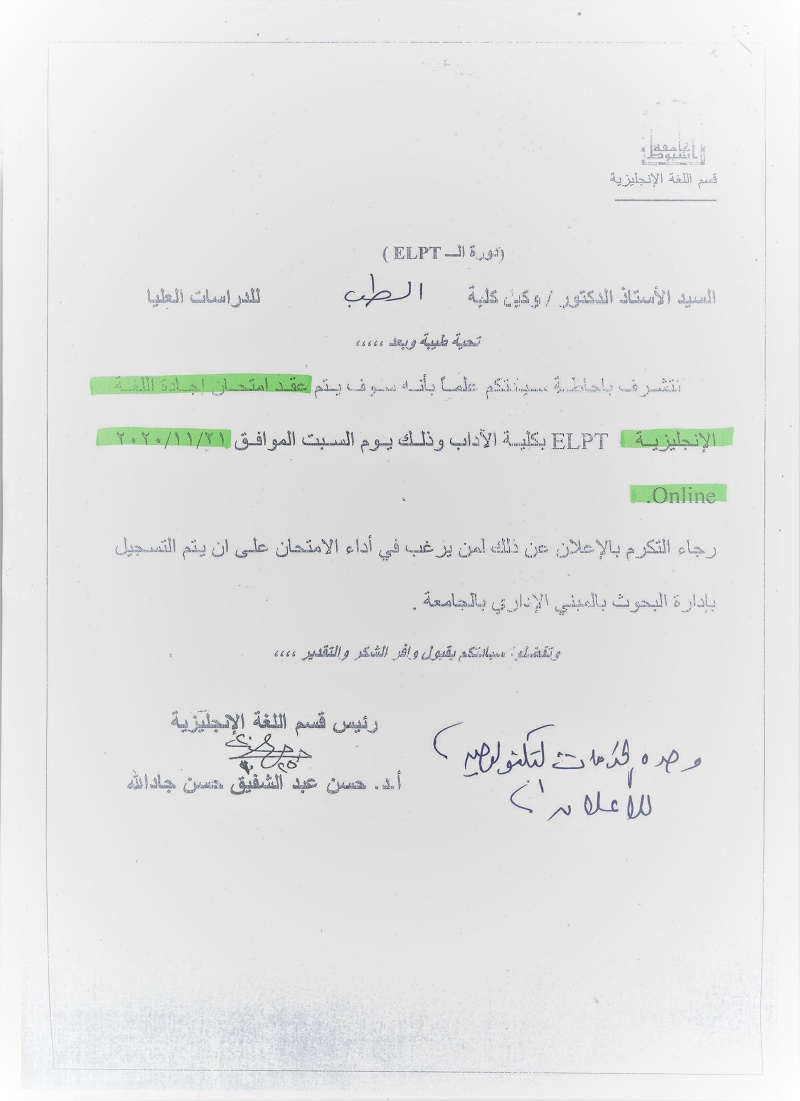 جامعة
أسيوط
قسم اللغة الإنجليزية
(دورة الــ ELPT )
السيد الأستاذ الدكتور / وكيل كلية الطب للدراسات العليا
تحية طيبة وبعد ،،،،،
نتشرف بإحاطة سيادتكم علماً بأنه سوف يتم عقد امتحان إجادة اللغة
الإنجليزية ELPT بكلية الآداب وذلك يوم السبت الموافق ٢٠٢٠/١١/٢١
Online.
رجاء التكرم بالإعلان عن ذلك لمن يرغب في أداء الامتحان على ان يتم التسجيل
بإدارة البحوث بالمبني الإداري بالجامعة .
وتفضلوا سيادتكم بقبول وافر الشكر والتقدير ،،،،
رئيس قسم اللغة الإنجليزية
أ.د. حسن عبد الشفيق حسن جادالله
وحده الخدمات التكنولوجيه
للإعلان